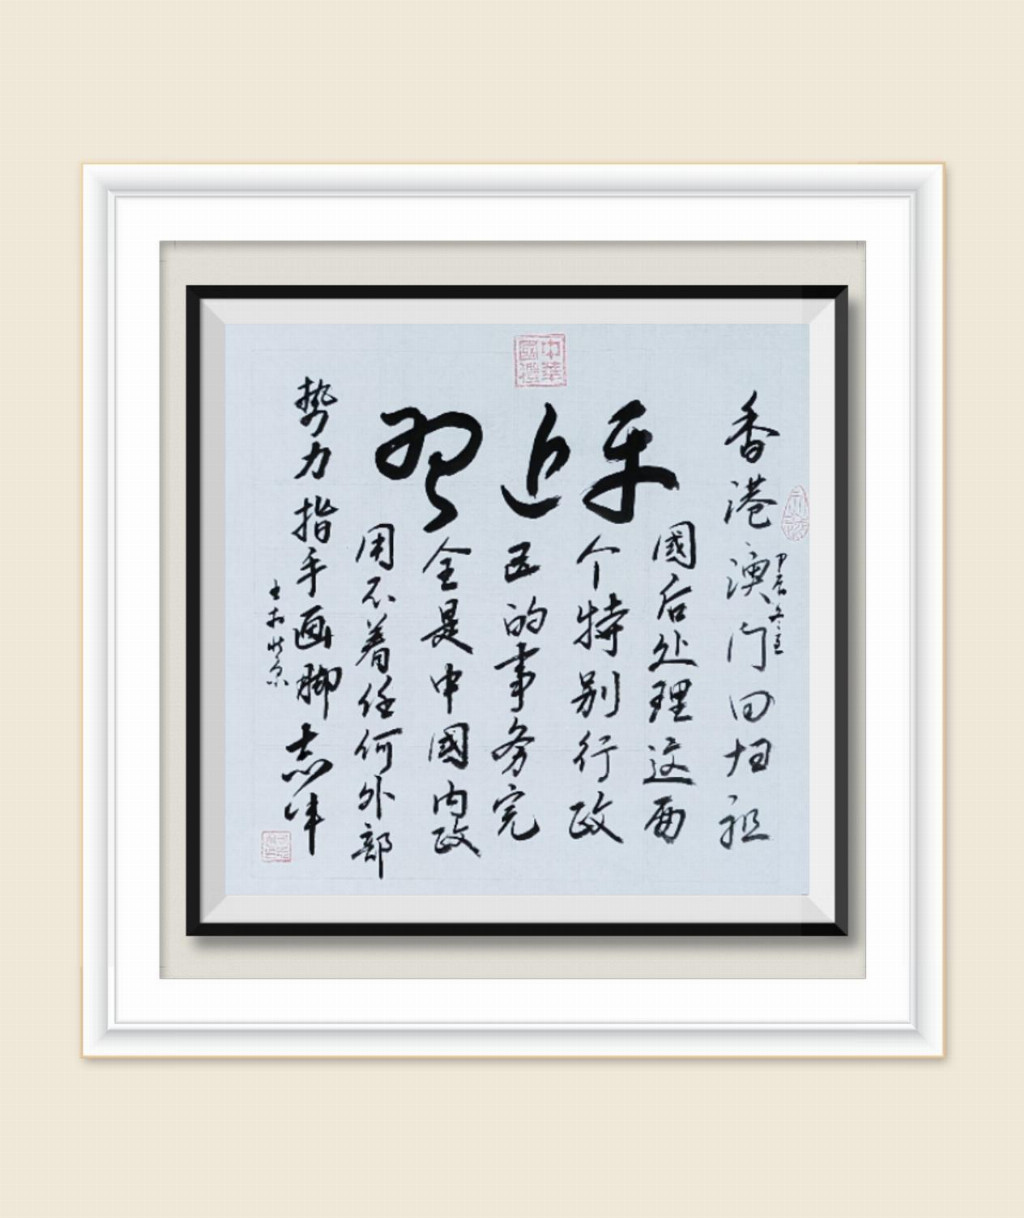 習近平
香港澳门回归祖
國后处理这两
个特别行政
区的事务完
全是中國内政
用不着任何外部
势力指手画脚
甲辰冬至